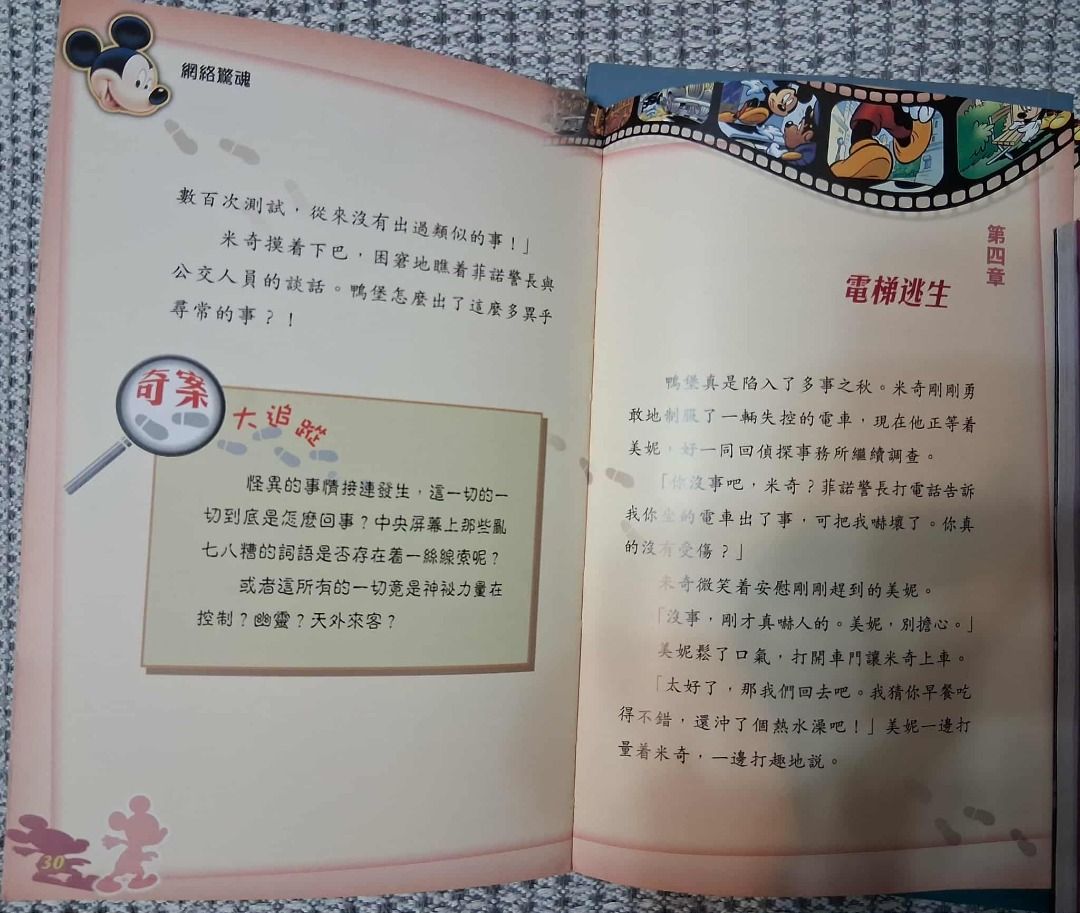 網絡驚魂
數百次測試，從來沒有出過類似的事！」
米奇摸着下巴，困窘地瞧着菲諾警長與
公交人員的談話。鴨堡怎麼出了這麼多異乎
尋常的事？！
奇案
大追蹤
怪異的事情接連發生，這一切的一
切到底是怎麼回事？中央屏幕上那些亂
七八糟的詞語是否存在着一絲線索呢？
或者這所有的一切竟是神祕力量在
控制？幽靈？天外來客？
30
第四章
電梯逃生
鴨堡真是陷入了多事之秋。米奇剛剛勇
敢地制服了一輛失控的電車，現在他正等着
美妮，好一同回偵探事務所繼續調查。
「你沒事吧，米奇？菲諾警長打電話告訴
我你坐的電車出了事，可把我嚇壞了。你真
的沒有受傷？」
米奇微笑着安慰剛剛趕到的美妮。
「沒事，剛才真嚇人的。美妮，別擔心。」
美妮鬆了口氣，打開車門讓米奇上車。
「太好了，那我們回去吧。我猜你早餐吃
得不錯，還沖了個熱水澡吧！」美妮一邊打
量着米奇，一邊打趣地説。